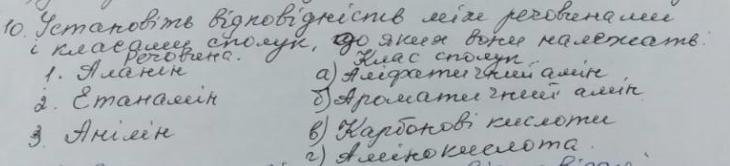 10. Установіть відповідність між речовинами
і класами сполук, до яких вони належать.
Речовина. Клас сполук
1. Аланін а) Аліфатичний амін
2. Етанамін б) Ароматичний амін
3. Анілін в) Карбонові кислоти
г) Амінокислота.